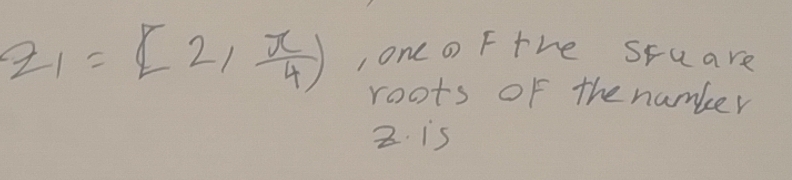 z₁ = [2, π/4), one of the square
roots of the number
z. is